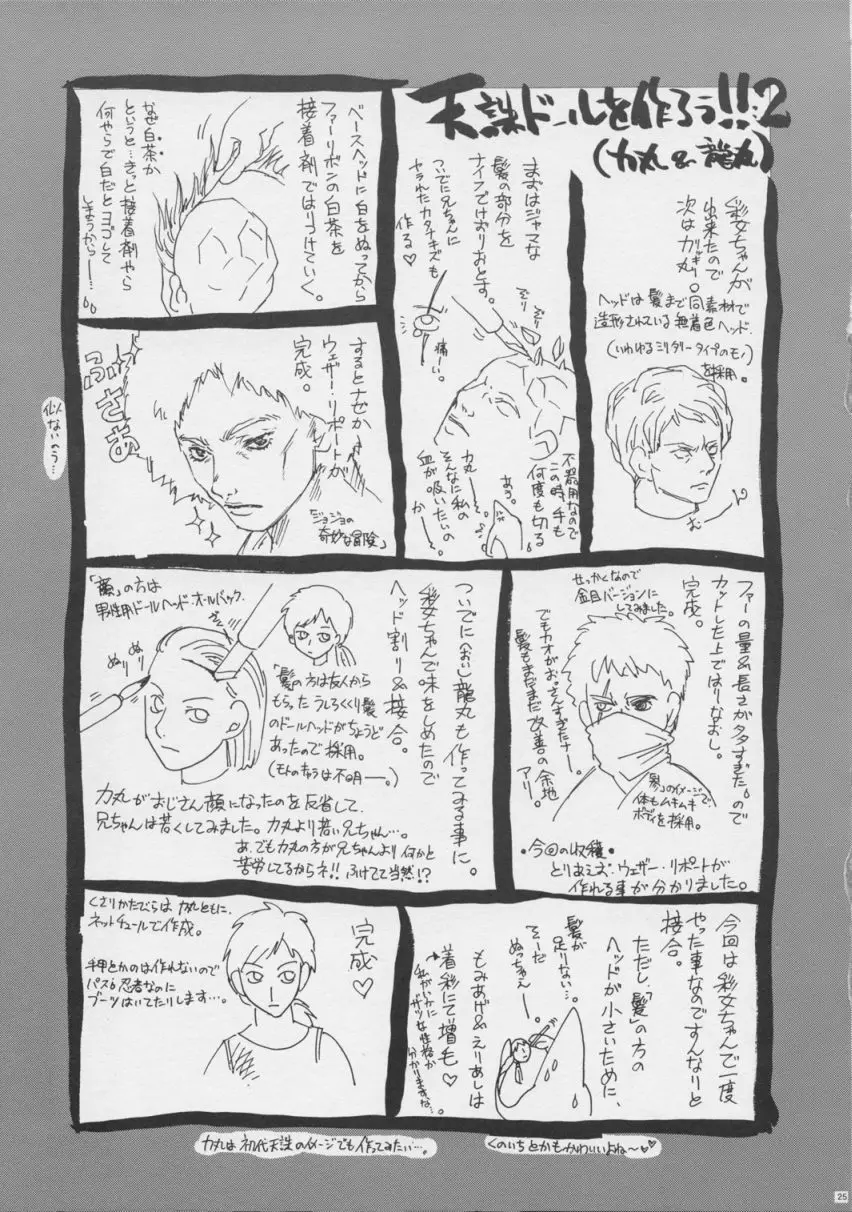 天誅ドールを作ろう!!:2
(力丸&龍丸)
彩女ちゃんが
出来たので
次は力丸。
ヘッドは髪まで同素材で
造形されている無着色ヘッド。
(いわゆるミリタリータイプのモノ)
を採用。
まずはジャマな
髪の部分を
ナイフでけずりおとす。
ついでに兄ちゃんに
ヤラれたカタナキズも
作る♡
痛ーい。
ぞり
ぞり
不器用なので
この時手も
何度も切る
あう。
力丸ー。
そんなに私の
血が吸いたいの
かー。
ベースヘッドに白をぬってから
ファーリボンの白茶を
接着剤ではりつけていく。
なぜ白茶か
というと…きっと接着剤やら
何やらで白だとヨゴして
しまうからー…。
するとナゼか
ウェザー・リポートが
完成。
ふさぁ
(ジョジョの
奇妙な冒険)
似ないのう…
ファーの量&長さが多すぎた。ので
カットした上ではりなおし。
完成。
せっかくなので
金目バージョンに
してみました。
でもカオがおっさんすぎたナー。
髪もまだまだ改善の余地
アリ。
「参」のイメージで
体もムキムキ
ボディを採用。
・今回の収穫・
とりあえず、ウェザー・リポートが
作れる事が分かりました。
ついでに(おい)龍丸も作ってみる事に。
彩女ちゃんで味をしめたので
ヘッド割り&接合。
「顔」の方は
男性用ドールヘッド・オールバック。
ぬり
ぬり
「髪」の方は友人から
もらったうしろくくり髪
のドールヘッドがちょうど
あったので採用。
(モトのキャラは不明ー。)
力丸がおじさん顔になったのを反省して、
兄ちゃんは若くしてみました。力丸より若い兄ちゃん…。
あ、でも力丸の方が兄ちゃんより何かと
苦労してるからネ!!ふけてて当然!?
今回は彩女ちゃんで一度
やった事なのですんなりと
接合。
ただし、「髪」の方の
ヘッドが小さいために、
髪が
足りない…。
そーだ
ぬっちゃえー。
もみあげ&えりあしは
着彩にて増毛♡
私がいかに
ザツな性格か
分かりますな…。
完成♡
くさりかたびらは力丸ともに、
ネットチュールで作成。
手甲とかのは作れないので
パス。忍者なのに
ブーツはいてたりします…。
力丸は初代天誅のイメージでも作ってみたい…。
くのいちとかもかわいいよね〜♡
25